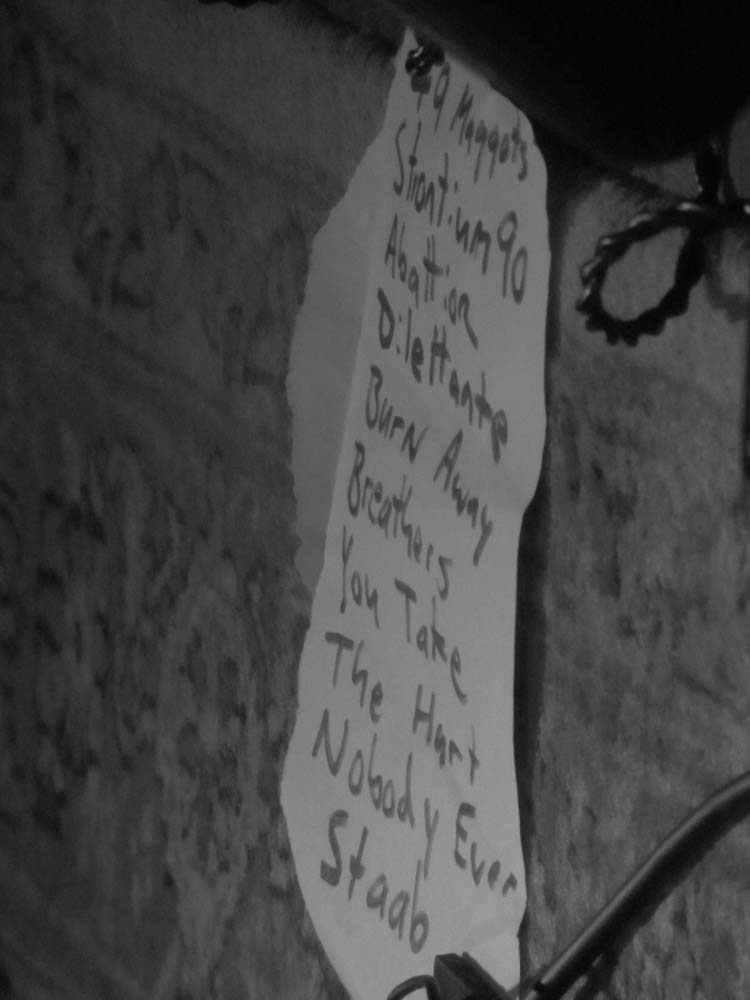 49 Maggots
Strontium 90
Abattior
Dilettante
Burn Away
Breathers
You Take
The Hurt
Nobody Ever
Staab